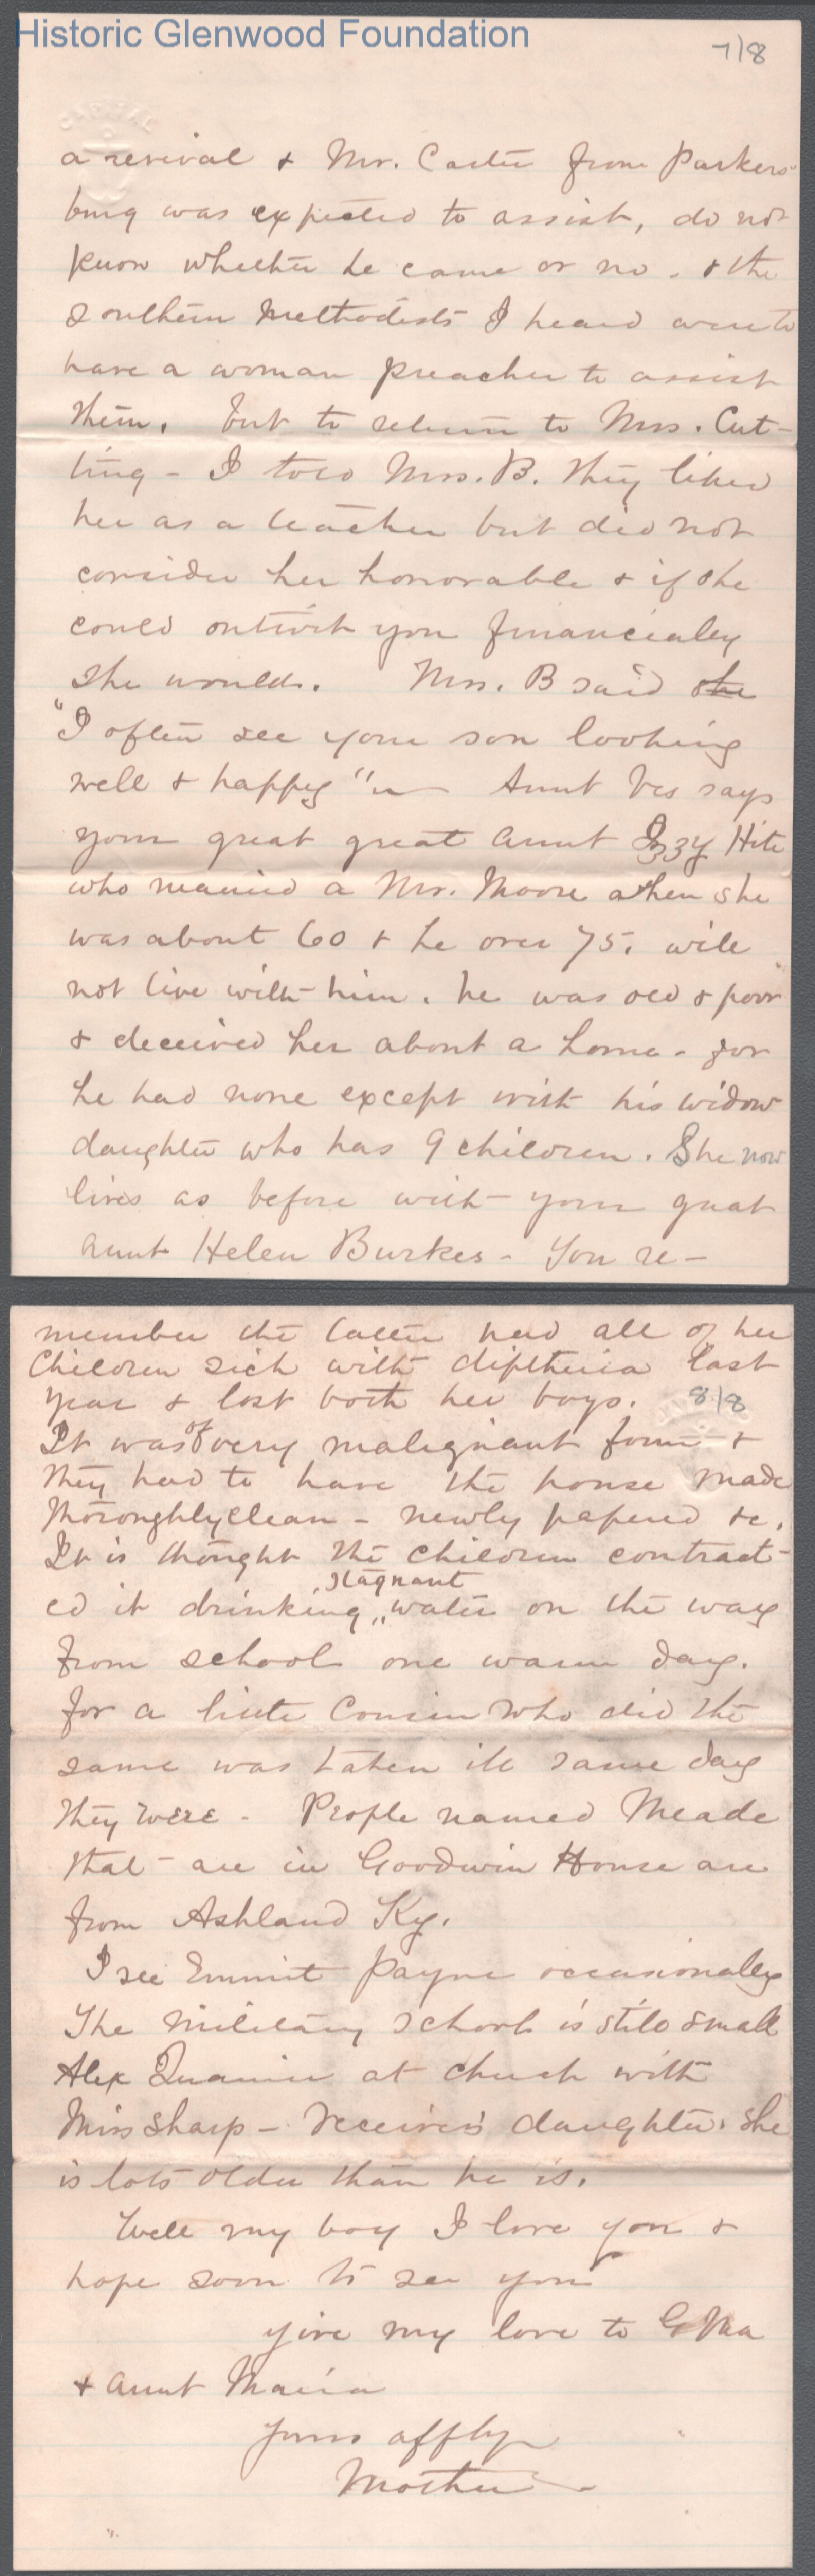 Historic Glenwood Foundation
7/8
CAPITAL
a revival & Mr. Carter from Parkers-
burg was expected to assist, do not
know whether he came or no - & the
Southern Methodists I heard were to
have a woman preacher to assist
them. But to return to Mrs. Cut-
ting - I told Mrs. B. they liked
her as a teacher but did not
consider her honorable & if she
could outwit you financialey
she would. Mrs. B said she
"I often see your son looking
well & happy" Aunt Ves says
your great great aunt Izzy Hite
who married a Mr. Moore when she
was about 60 & he over 75. will
not live with him. he was old & poor
& deceived her about a home - for
he had none except with his widow
daughter who has 9 children. She now
lives as before with your great
aunt Helen Burkes - You re-
member the latter had all of her
Children sick with diptheria last
year & lost both her boys.
8/8
It was of very malignant form &
they had to have the house made
thoroughly clean - newly papered &c.
It is thought the children contract-
ed it drinking stagnant water on the way
from school one warm day.
for a little Cousin who did the
same was taken ill same day
they were - People named Meade
that are in Goodwin House are
from Ashland Ky.
I see Emmit Payne occasionally
The Military school is still small
Alex Quarrier at church with
Miss Sharp - receiver's daughter. She
is lots older than he is.
Well my boy I love you &
hope soon to see you
give my love to G Ma
& Aunt Maria
Yours affly
Mother